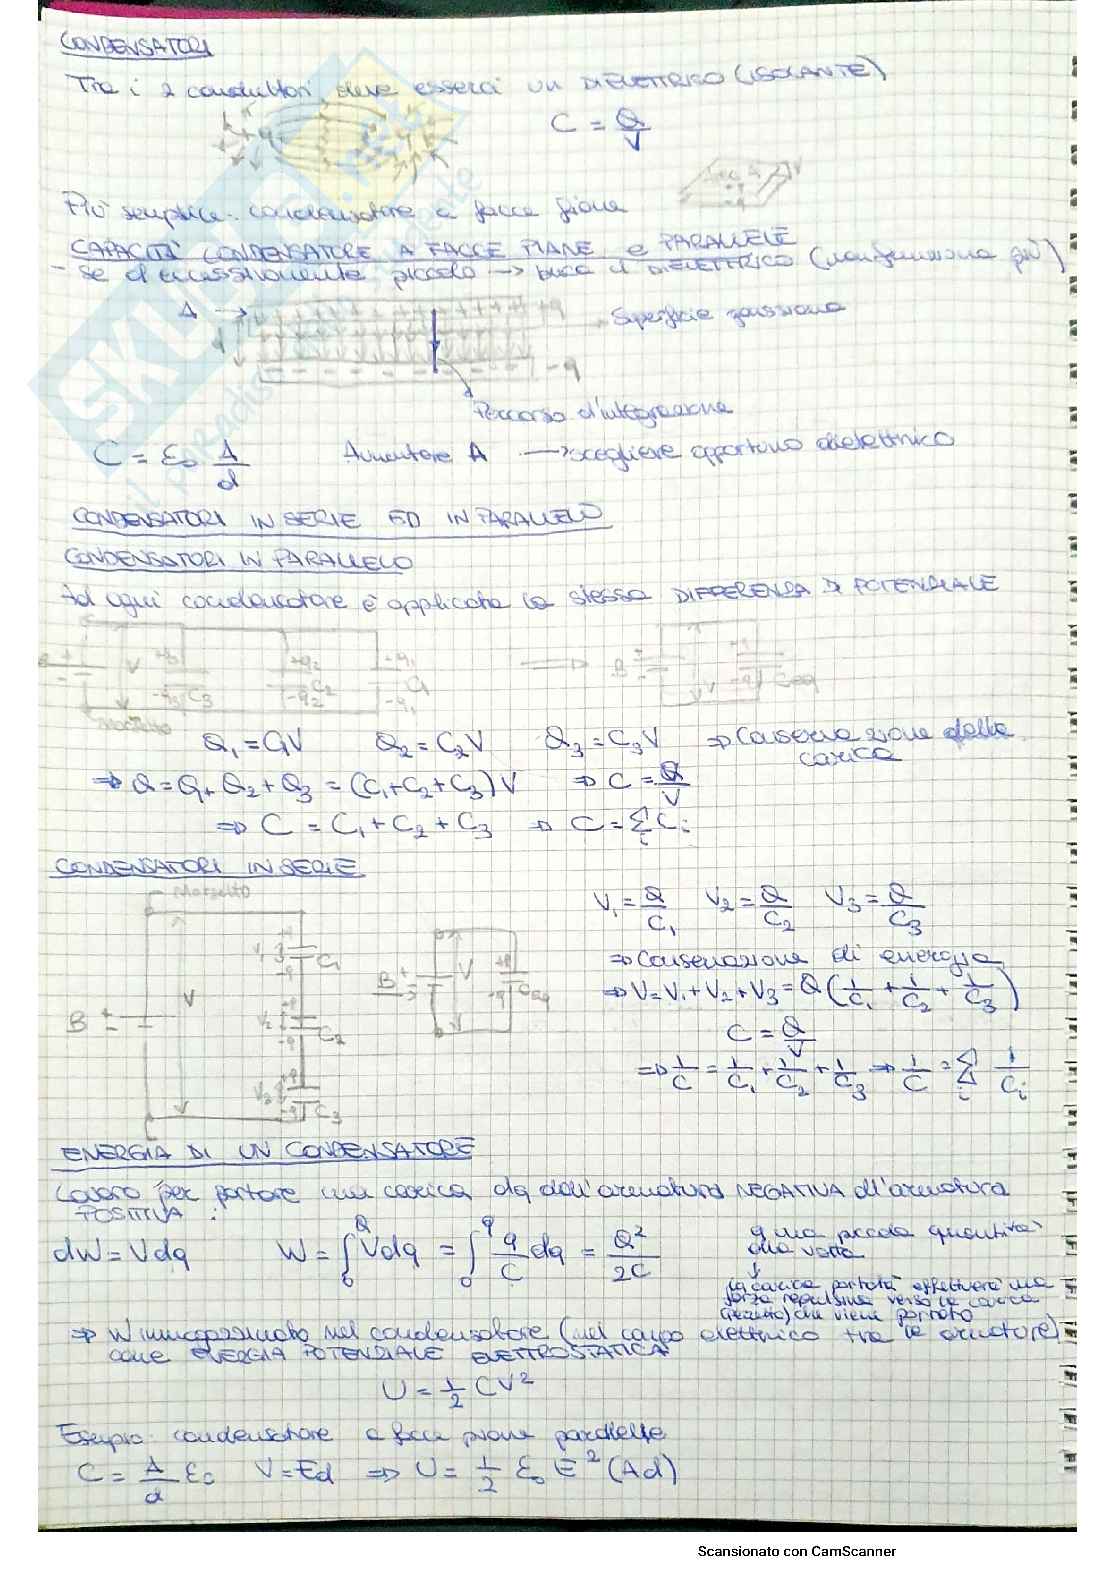 CONDENSATORI
Tra i 2 conduttori deve esserci un DIELETTRICO (ISOLANTE)
C = Q/V
Più semplice: condensatore a facce piane
CAPACITÀ CONDENSATORE A FACCE PIANE e PARALLELE
- se d eccessivamente piccolo → buca il DIELETTRICO (non funziona più)
A → + + + + + + + +q
Superficie gaussiana
d
- - - - - -q
Percorso d'integrazione
C = ε₀ A/d Aumentare A → scegliere opportuno dielettrico
CONDENSATORI IN SERIE ED IN PARALLELO
CONDENSATORI IN PARALLELO
Ad ogni condensatore è applicata la stessa DIFFERENZA DI POTENZIALE
B + - V +q₃ -q₃ C₃ +q₂ -q₂ C₂ -q₁ -q₁ C₁ → B + - V +q -q Ceq
Morsetto
Q₁ = C₁V Q₂ = C₂V Q₃ = C₃V ⇒ Conservazione della carica
⇒ Q = Q₁+Q₂+Q₃ = (C₁+C₂+C₃)V ⇒ C = Q/V
⇒ C = C₁ + C₂ + C₃ ⇒ C = Σᵢ Cᵢ
CONDENSATORI IN SERIE
Morsetto
V₁ +q -q C₁
B + - V V₂ +q -q C₂
V₃ +q -q C₃
B + - V +q -q Ceq
V₁ = Q/C₁ V₂ = Q/C₂ V₃ = Q/C₃
⇒ Conservazione di energia
⇒ V = V₁+V₂+V₃ = Q(1/C₁ + 1/C₂ + 1/C₃)
C = Q/V
⇒ 1/C = 1/C₁ + 1/C₂ + 1/C₃ ⇒ 1/C = Σᵢ 1/Cᵢ
ENERGIA DI UN CONDENSATORE
Lavoro per portare una carica dq dall'armatura NEGATIVA all'armatura
POSITIVA:
dW = Vdq W = ∫₀^Q Vdq = ∫₀^q q/C dq = Q²/2C
q una piccola quantità
alla volta
↓
la carica portata effettuerà una
forza repulsiva verso la carica
che viene portato
⇒ W immagazzinato nel condensatore (nel campo elettrico tra le armature)
come ENERGIA POTENZIALE ELETTROSTATICA
U = 1/2 CV²
Esempio: condensatore a facce piane parallele
C = A/d ε₀ V = Ed ⇒ U = 1/2 ε₀ E² (Ad)
SKUOLA.net
il paradiso dello studente
Scansionato con CamScanner